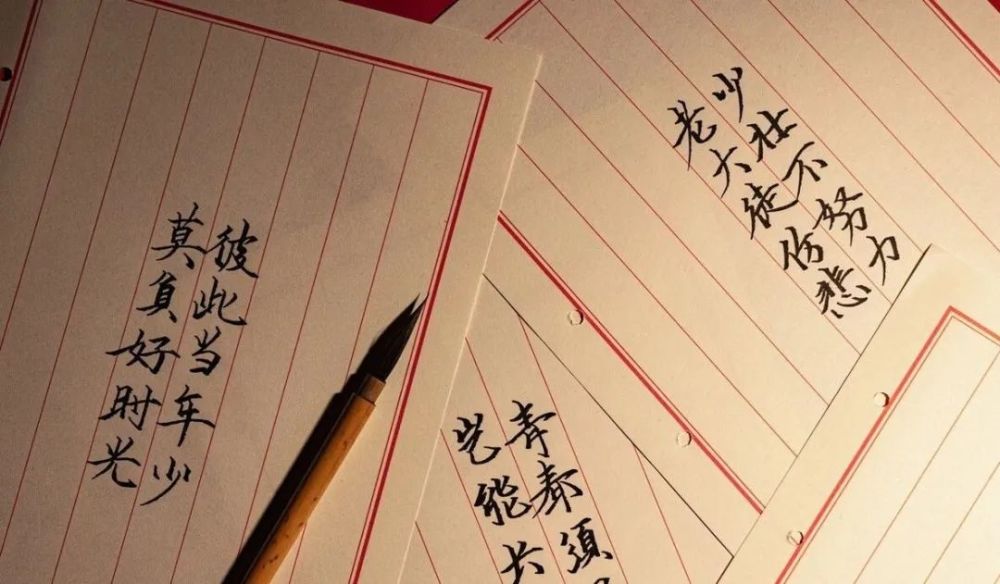 彼此当年少
莫負好时光
少壮不努力
老大徒伤悲
青須
岂能长